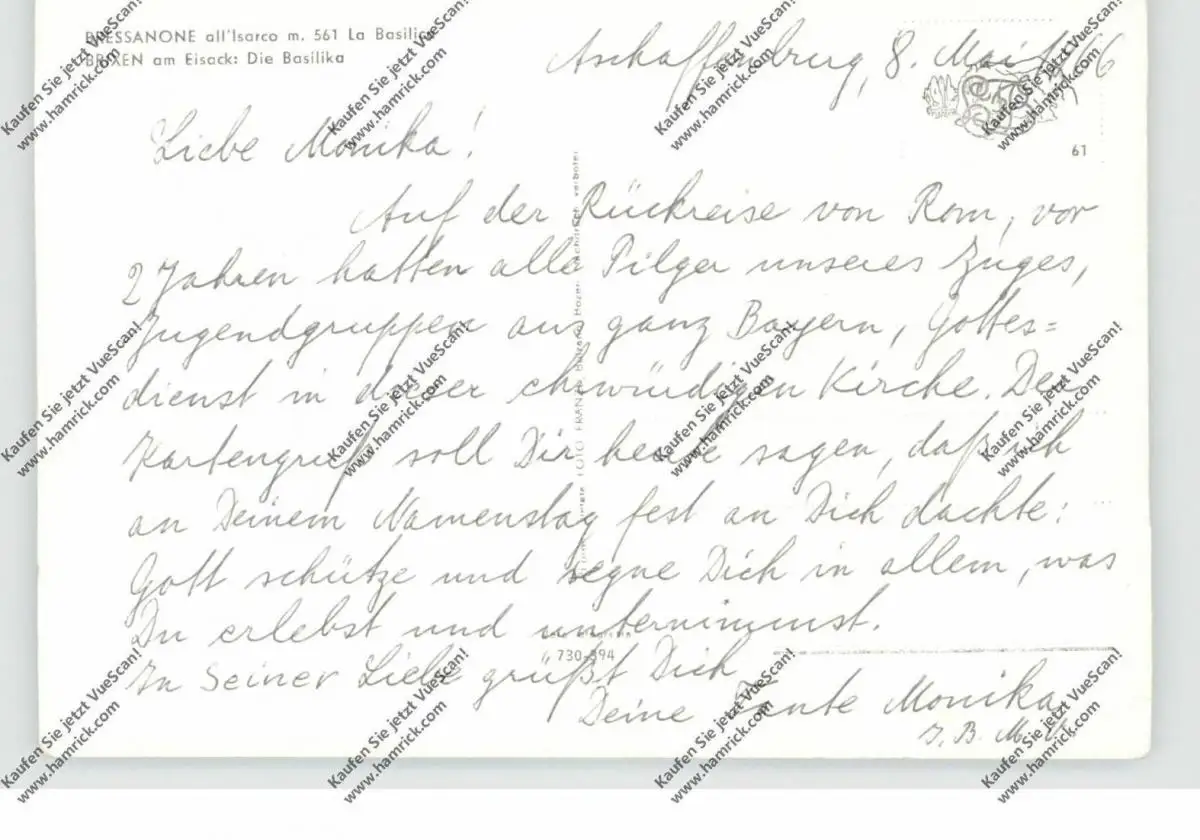 BRESSANONE all'Isarco m. 561 La Basilica
BRIXEN am Eisack: Die Basilika
Aschaffenburg, 8. Mai
61
Liebe Monika!
Auf der Rückreise von Rom, vor
2 Jahren hatten alle Pilger unseres Zuges,
Jugendgruppen aus ganz Bayern, Gottes=
dienst in dieser ehrwürdigen Kirche. Der
Kartengruß soll Dir heute sagen, daß ich
an Deinem Namenstag fest an Dich dachte:
Gott schütze und segne Dich in allem, was
Du erlebst und unternimmst.
In Seiner Liebe grüßt Dich
Deine Tante Monika
J. B. M. V.
FOTO FRANZ
verboten
730-394
Kaufen Sie jetzt VueScan!
www.hamrick.com
Kaufen Sie jetzt VueScan!
www.hamrick.com
Kaufen Sie jetzt VueScan!
www.hamrick.com
Kaufen Sie jetzt VueScan!
www.hamrick.com
Kaufen Sie jetzt VueScan!
www.hamrick.com
Kaufen Sie jetzt VueScan!
www.hamrick.com
Kaufen Sie jetzt VueScan!
www.hamrick.com
Kaufen Sie jetzt VueScan!
www.hamrick.com
Kaufen Sie jetzt VueScan!
www.hamrick.com
Kaufen Sie jetzt VueScan!
www.hamrick.com
Kaufen Sie jetzt VueScan!
www.hamrick.com
Kaufen Sie jetzt VueScan!
www.hamrick.com